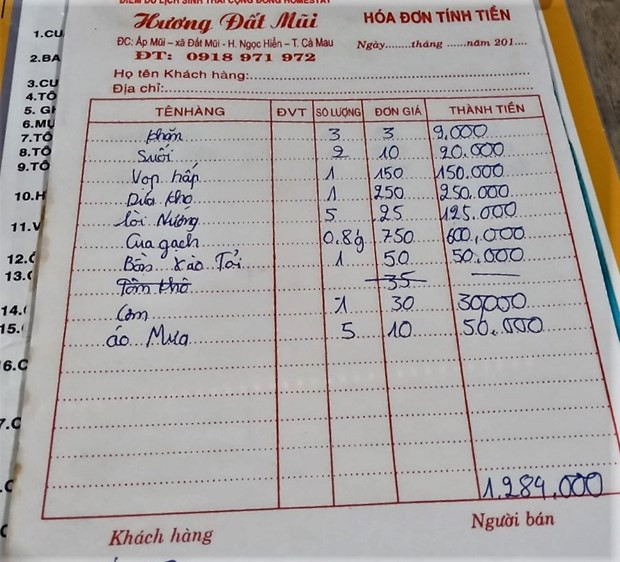 ĐIỂM DU LỊCH SINH THÁI CỘNG ĐỒNG HOMESTAY
Hương Đất Mũi
HÓA ĐƠN TÍNH TIỀN
ĐC: Ấp Mũi – xã Đất Mũi - H. Ngọc Hiển – T. Cà Mau
Ngày........tháng ......năm 201....
ĐT: 0918 971 972
Họ tên Khách hàng:
Địa chỉ:
TÊN HÀNG ĐVT SỐ LƯỢNG ĐƠN GIÁ THÀNH TIỀN
Khăn 3 3 9.000
Suối 2 10 20.000
Vọp hấp 1 150 150.000
Dứa kho 1 250 250.000
lòi Nướng 5 25 125.000
Cua gạch 0.8 750 600.000
Bồn Xào Tỏi 1 50 50.000
Tôm khô 35
Cơm 1 30 30000
áo Mưa 5 10 50.000
1.284,000
Khách hàng
Người bán
1.CU
2.BA
3.CU
4.TÔ
5. GH
6.MỰ
7.TÔ
8.TÔ
9.TÔ
10.H
11.V
12.
13.
14.
15.
6.C
7.C